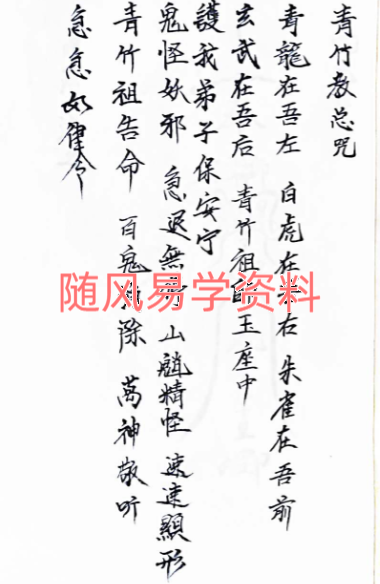 青竹教总咒
青龍在吾左 白虎在吾右 朱雀在吾前
玄武在吾后 青竹祖師玉座中
護我弟子保安宁
鬼怪妖邪 急退無 山魈精怪 速速顯形
青竹祖告命 百鬼 除 萬神敬听
急急如律令
随风易学资料